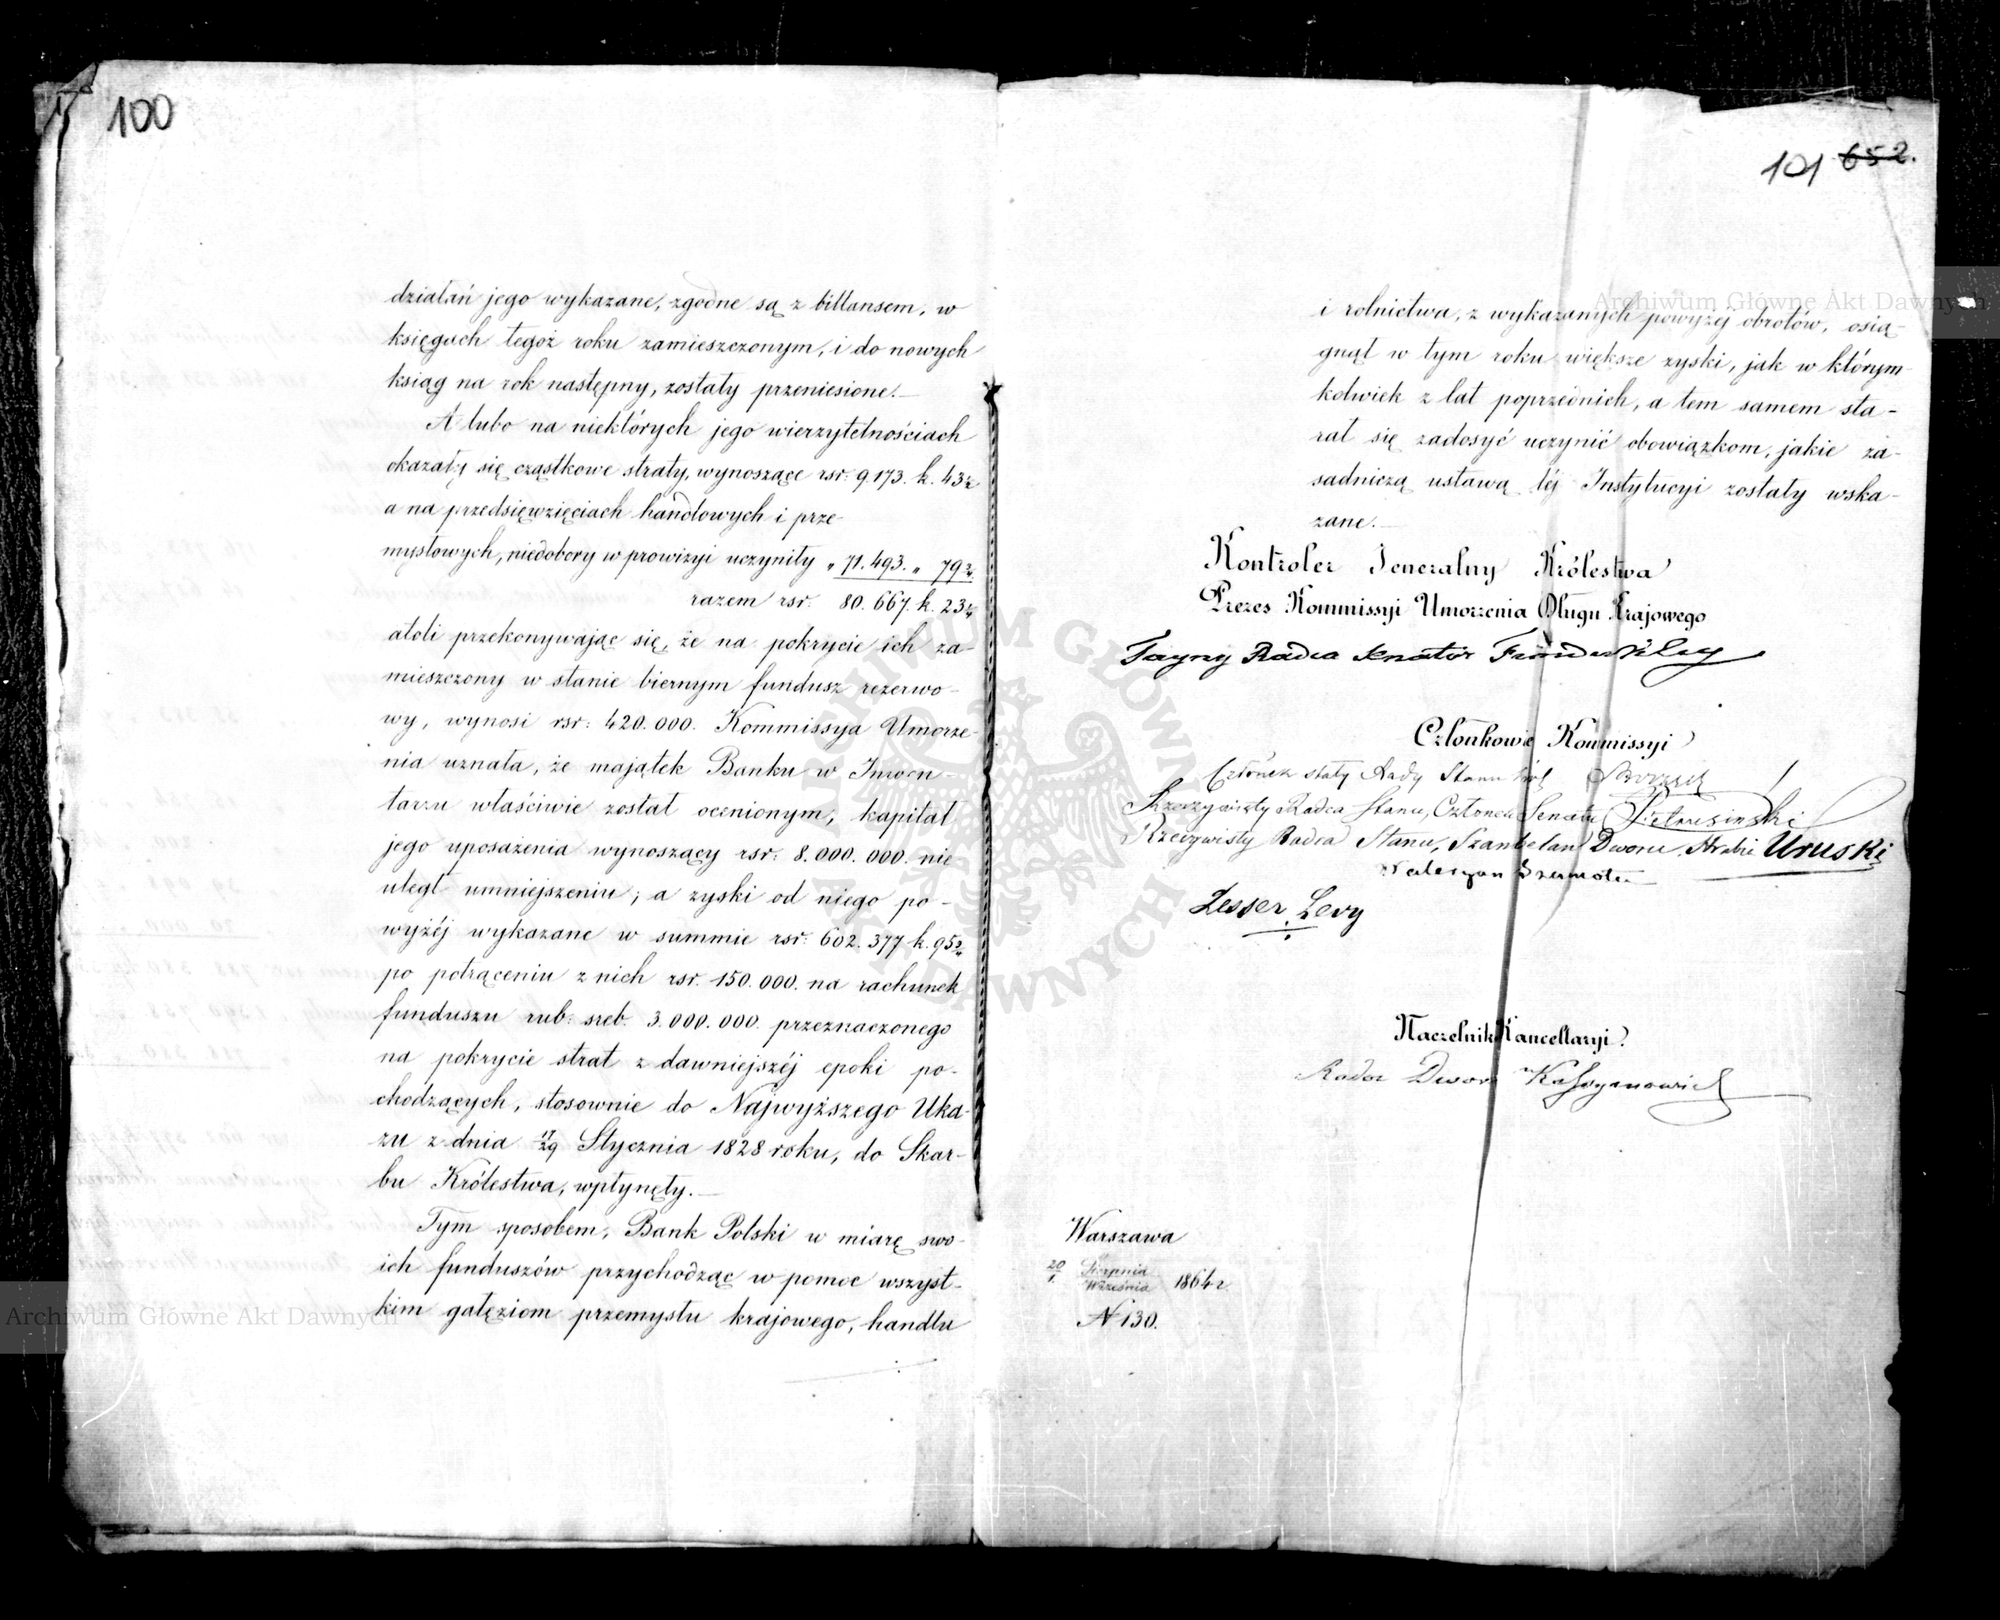 100
działań jego wykazane, zgodne są z billansem, w
księgach tegoż roku zamieszczonym, i do nowych
ksiąg na rok następny, zostały przeniesione.—
A lubo na niektórych jego wierzytelnościach
okazały się cząstkowe straty, wynoszące rsr: 9.173. k. 43
a na przedsięwzięciach handlowych i prze-
mysłowych, niedobory w prowizyi uczyniły „ 71.493. „ 79
razem rsr: 80.667. k. 23
atoli przekonywając się, że na pokrycie ich za-
mieszczony w stanie biernym fundusz rezerwo-
wy, wynosi rsr: 420.000. Kommissya Umorze-
nia uznała, że majątek Banku w Inwen-
tarzu właściwie został ocenionym, kapitał
jego uposażenia wynoszący rsr: 8.000.000. nie
uległ umniejszeniu; a zyski od niego po-
wyżéj wykazane w summie rsr: 602.377 k. 95
po potrąceniu z nich rsr. 150.000. na rachunek
funduszu rub: sreb: 3.000.000. przeznaczonego
na pokrycie strat z dawniejszéj epoki po-
chodzących, stosownie do Najwyższego Uka-
zu z dnia 17/29 Stycznia 1828 roku, do Skar-
bu Królestwa, wpłynęły.—
Tym sposobem, Bank Polski w miarę swo-
ich funduszów przychodząc w pomoc wszyst-
kim gałęziom przemysłu krajowego, handlu
101 652.
i rolnictwa, z wykazanych powyżéj obrotów, osią-
gnął w tym roku większe zyski, jak w którym-
kolwiek z lat poprzednich, a tem samem sta-
rał się zadosyć uczynić obowiązkom, jakie za-
sadniczą ustawą téj Instytucyi zostały wska-
zane.—
Kontroler Jeneralny Królestwa
Prezes Kommissyi Umorzenia Długu Krajowego
Tayny Radca Senator
Członkowie Kommissyi
Członek stały Rady Stanu
Rzeczywisty Radca Stanu, Członek Senatu Pietrusiński
Rzeczywisty Radca Stanu, Szambelan Dworu, Hrabia Uruski
Waleryan
Lesser Levy
Naczelnik Kancellaryi
Radca Dworu
Warszawa
20/1. Sierpnia/Września 1864 r.
N 130.
Archiwum Główne Akt Dawnych
Archiwum Główne Akt Dawnych
ARCHIWUM GŁÓWNE AKT DAWNYCH